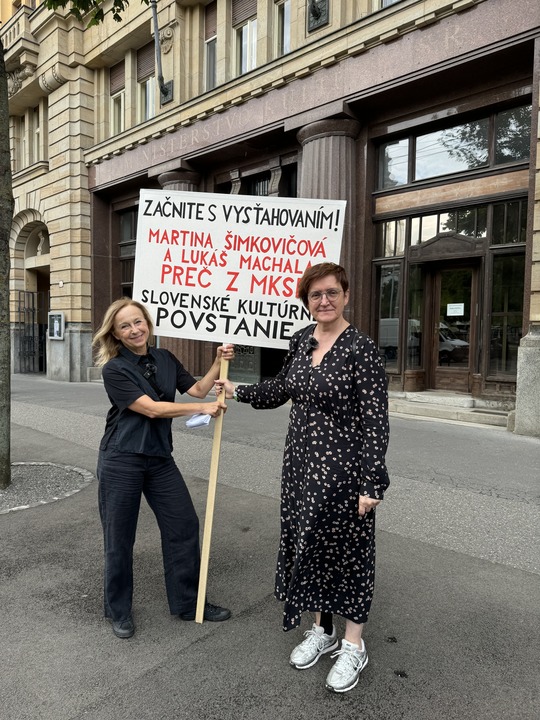 MINISTERSTVO KULTÚRY SR
ZAČNITE S VYSŤAHOVANÍM!
MARTINA ŠIMKOVIČOVÁ
A LUKÁŠ MACHALA
PREČ Z MKSR
SLOVENSKÉ KULTÚRNE
POVSTANIE